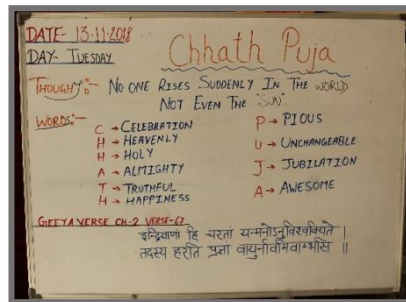 DATE- 13-11-2018
DAY- TUESDAY
Chhath Puja
THOUGHT:- NO ONE RISES SUDDENLY IN THE WORLD
NOT EVEN THE "SUN".
WORDS:-
C → CELEBRATION
H → HEAVENLY
H → HOLY
A → ALMIGHTY
T → TRUTHFUL
H → HAPPINESS
P → PIOUS
U → UNCHANGEABLE
J → JUBILATION
A → AWESOME
GEETA VERSE CH-2 VERSE-67
इन्द्रियाणां हि चरतां यन्मनोऽनुविधीयते |
तदस्य हरति प्रज्ञां वायुर्नावमिवाम्भसि ||